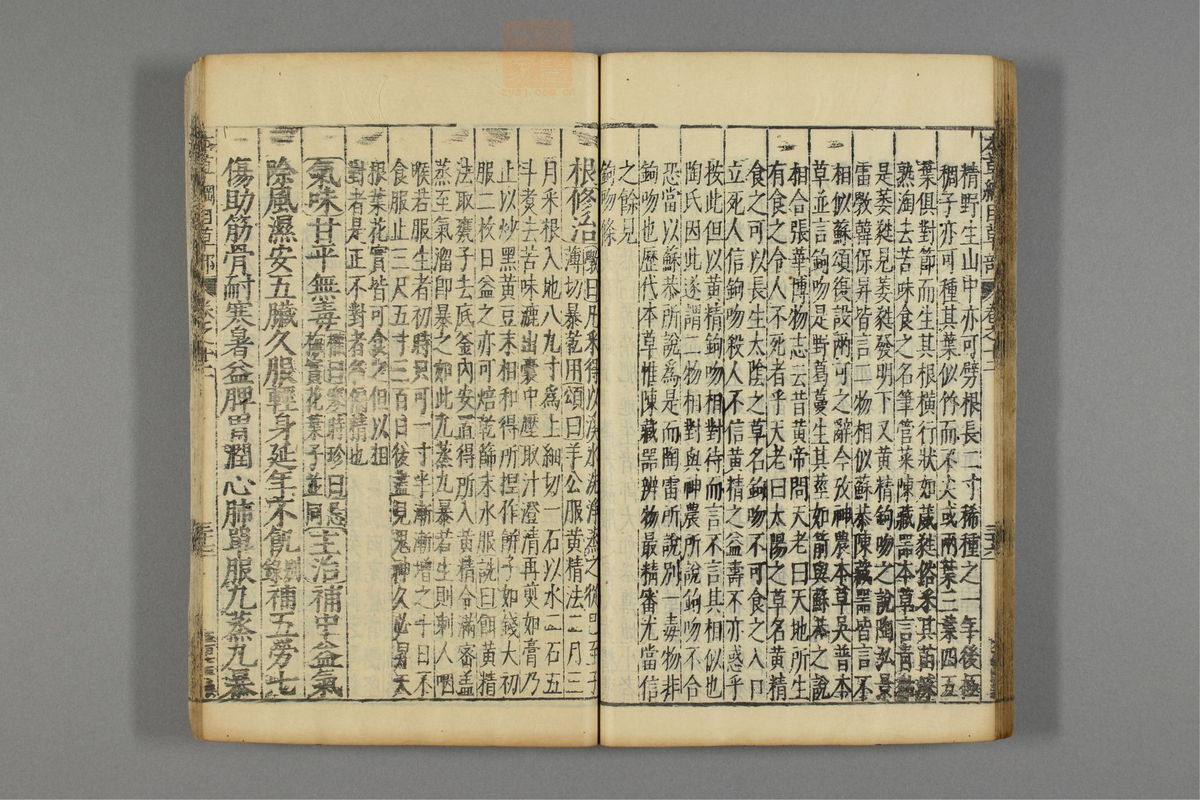 精野生山中亦可劈根長二寸稀種之一年後極
稠子亦可種其葉似竹而不尖或兩葉三葉四五
葉俱對節而生其根橫行狀如葳蕤俗采其苗煠
熟淘去苦味食之名筆管菜陳藏器本草言青
是萎蕤見萎蕤發明下又黃精鉤吻之說陶弘景
雷斆韓保昇皆言二物相似蘇恭陳藏器皆言不
相似蘇頌復設兩可之辭今攷神農本草吳普本
草並言鉤吻是野葛蔓生其莖如箭與蘇恭之說
相合張華博物志云昔黃帝問天老曰天地所生
有食之令人不死者乎天老曰太陽之草名黃精
食之可以長生太陰之草名鉤吻不可食之入口
立死人信鉤吻殺人不信黃精之益壽不亦惑乎
按此但以黃精鉤吻相對待而言不言其相似也
陶氏因此遂謂二物相對與神農所說鉤吻不合
恐當以蘇恭所說為是而陶雷所說別一毒物非
鉤吻也歷代本草惟陳藏器辨物最精審尤當信
之餘見
鉤吻條
根修治斆曰凡采得以溪水洗淨蒸之從巳至子
薄切暴乾用頌曰羊公服黃精法二月三
月采根入地八九寸為上細切一石以水二石五
斗煮去苦味漉出囊中壓取汁澄清再煎如膏乃
止以炒黑黃豆末相和得所捏作餅子如錢大初
服二枚日益之亦可焙乾篩末水服詵曰餌黃精
法取甕子去底釜內安置得所入黃精令滿密蓋
蒸至氣溜即暴之如此九蒸九暴若生則刺人咽
喉若服生者初時只可一寸半漸漸增之十日不
食服止三尺五寸三百日後盡見鬼神久必昇天
根葉花實皆可食之但以相
對者是正不對者名偏精也
氣味甘平無毒權曰寒時珍曰忌
梅實花葉子並同主治補中益氣
除風濕安五臟久服輕身延年不飢別錄補五勞七
傷助筋骨耐寒暑益脾胃潤心肺單服九蒸九暴